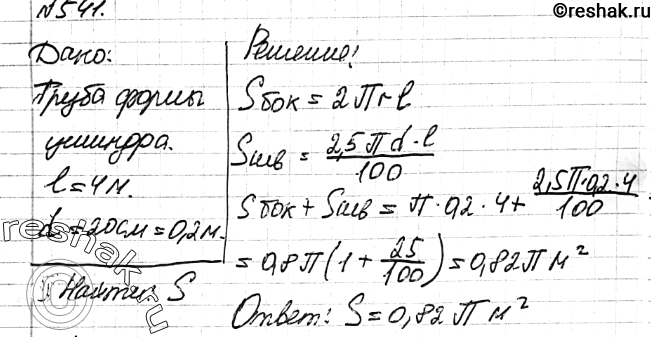 ©reshak.ru
№541.
Дано:
Труба формы
цилиндра.
l=4м.
d=20см=0,2м.
Найти: S
Решение:
Sбок=2πrl
Sшв=2,5πd·l/100
Sбок+Sшв=π·0,2·4+2,5π·0,2·4/100
=0,8π(1+25/100)=0,82πм²
Ответ: S=0,82πм²
reshak.ru